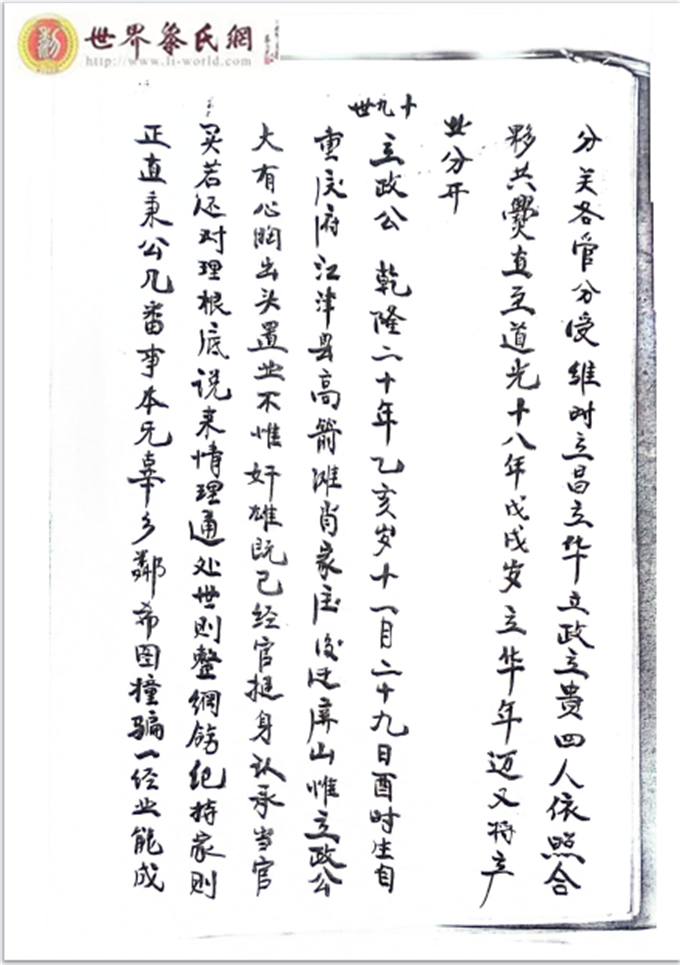 世界黎氏網
http://www.li-world.com
分关各管分受维时立昌立华立政立贵四人依照合
夥共爨直至道光十八年戊戌岁立华年迈又将产
业分开
十九世
立政公 乾隆二十年乙亥岁十一月二十九日酉时生自
重庆府江津县高箭滩肖家庄後迁屏山惟立政公
大有心胸出头置业不惟奸雄既已经官挺身认承当官
买若还对理根底说来情理通处世则整綱饬纪持家则
正直秉公几番事本无辜乡鄰希图撞骗一经业能成